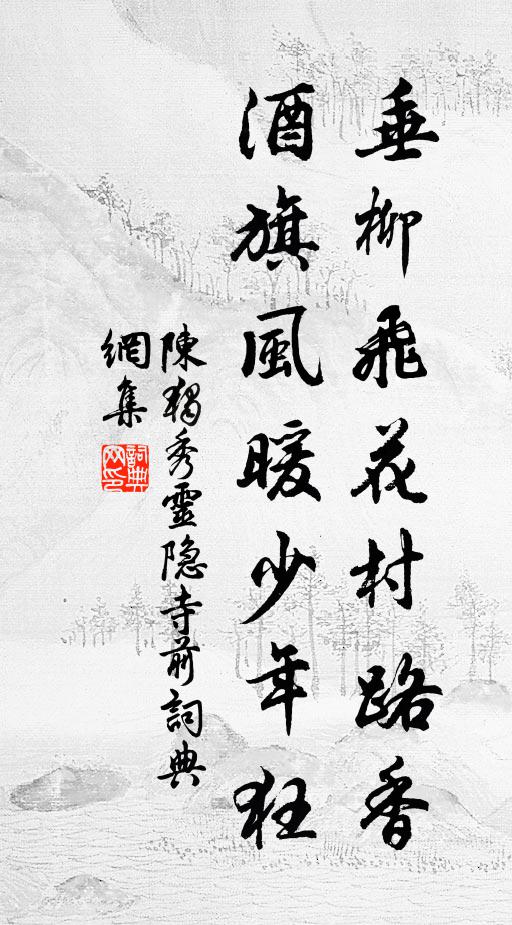 垂柳飛花村路香
酒旗風暖少年狂
陳獨秀靈隐寺前詞典
網集
詞典網印